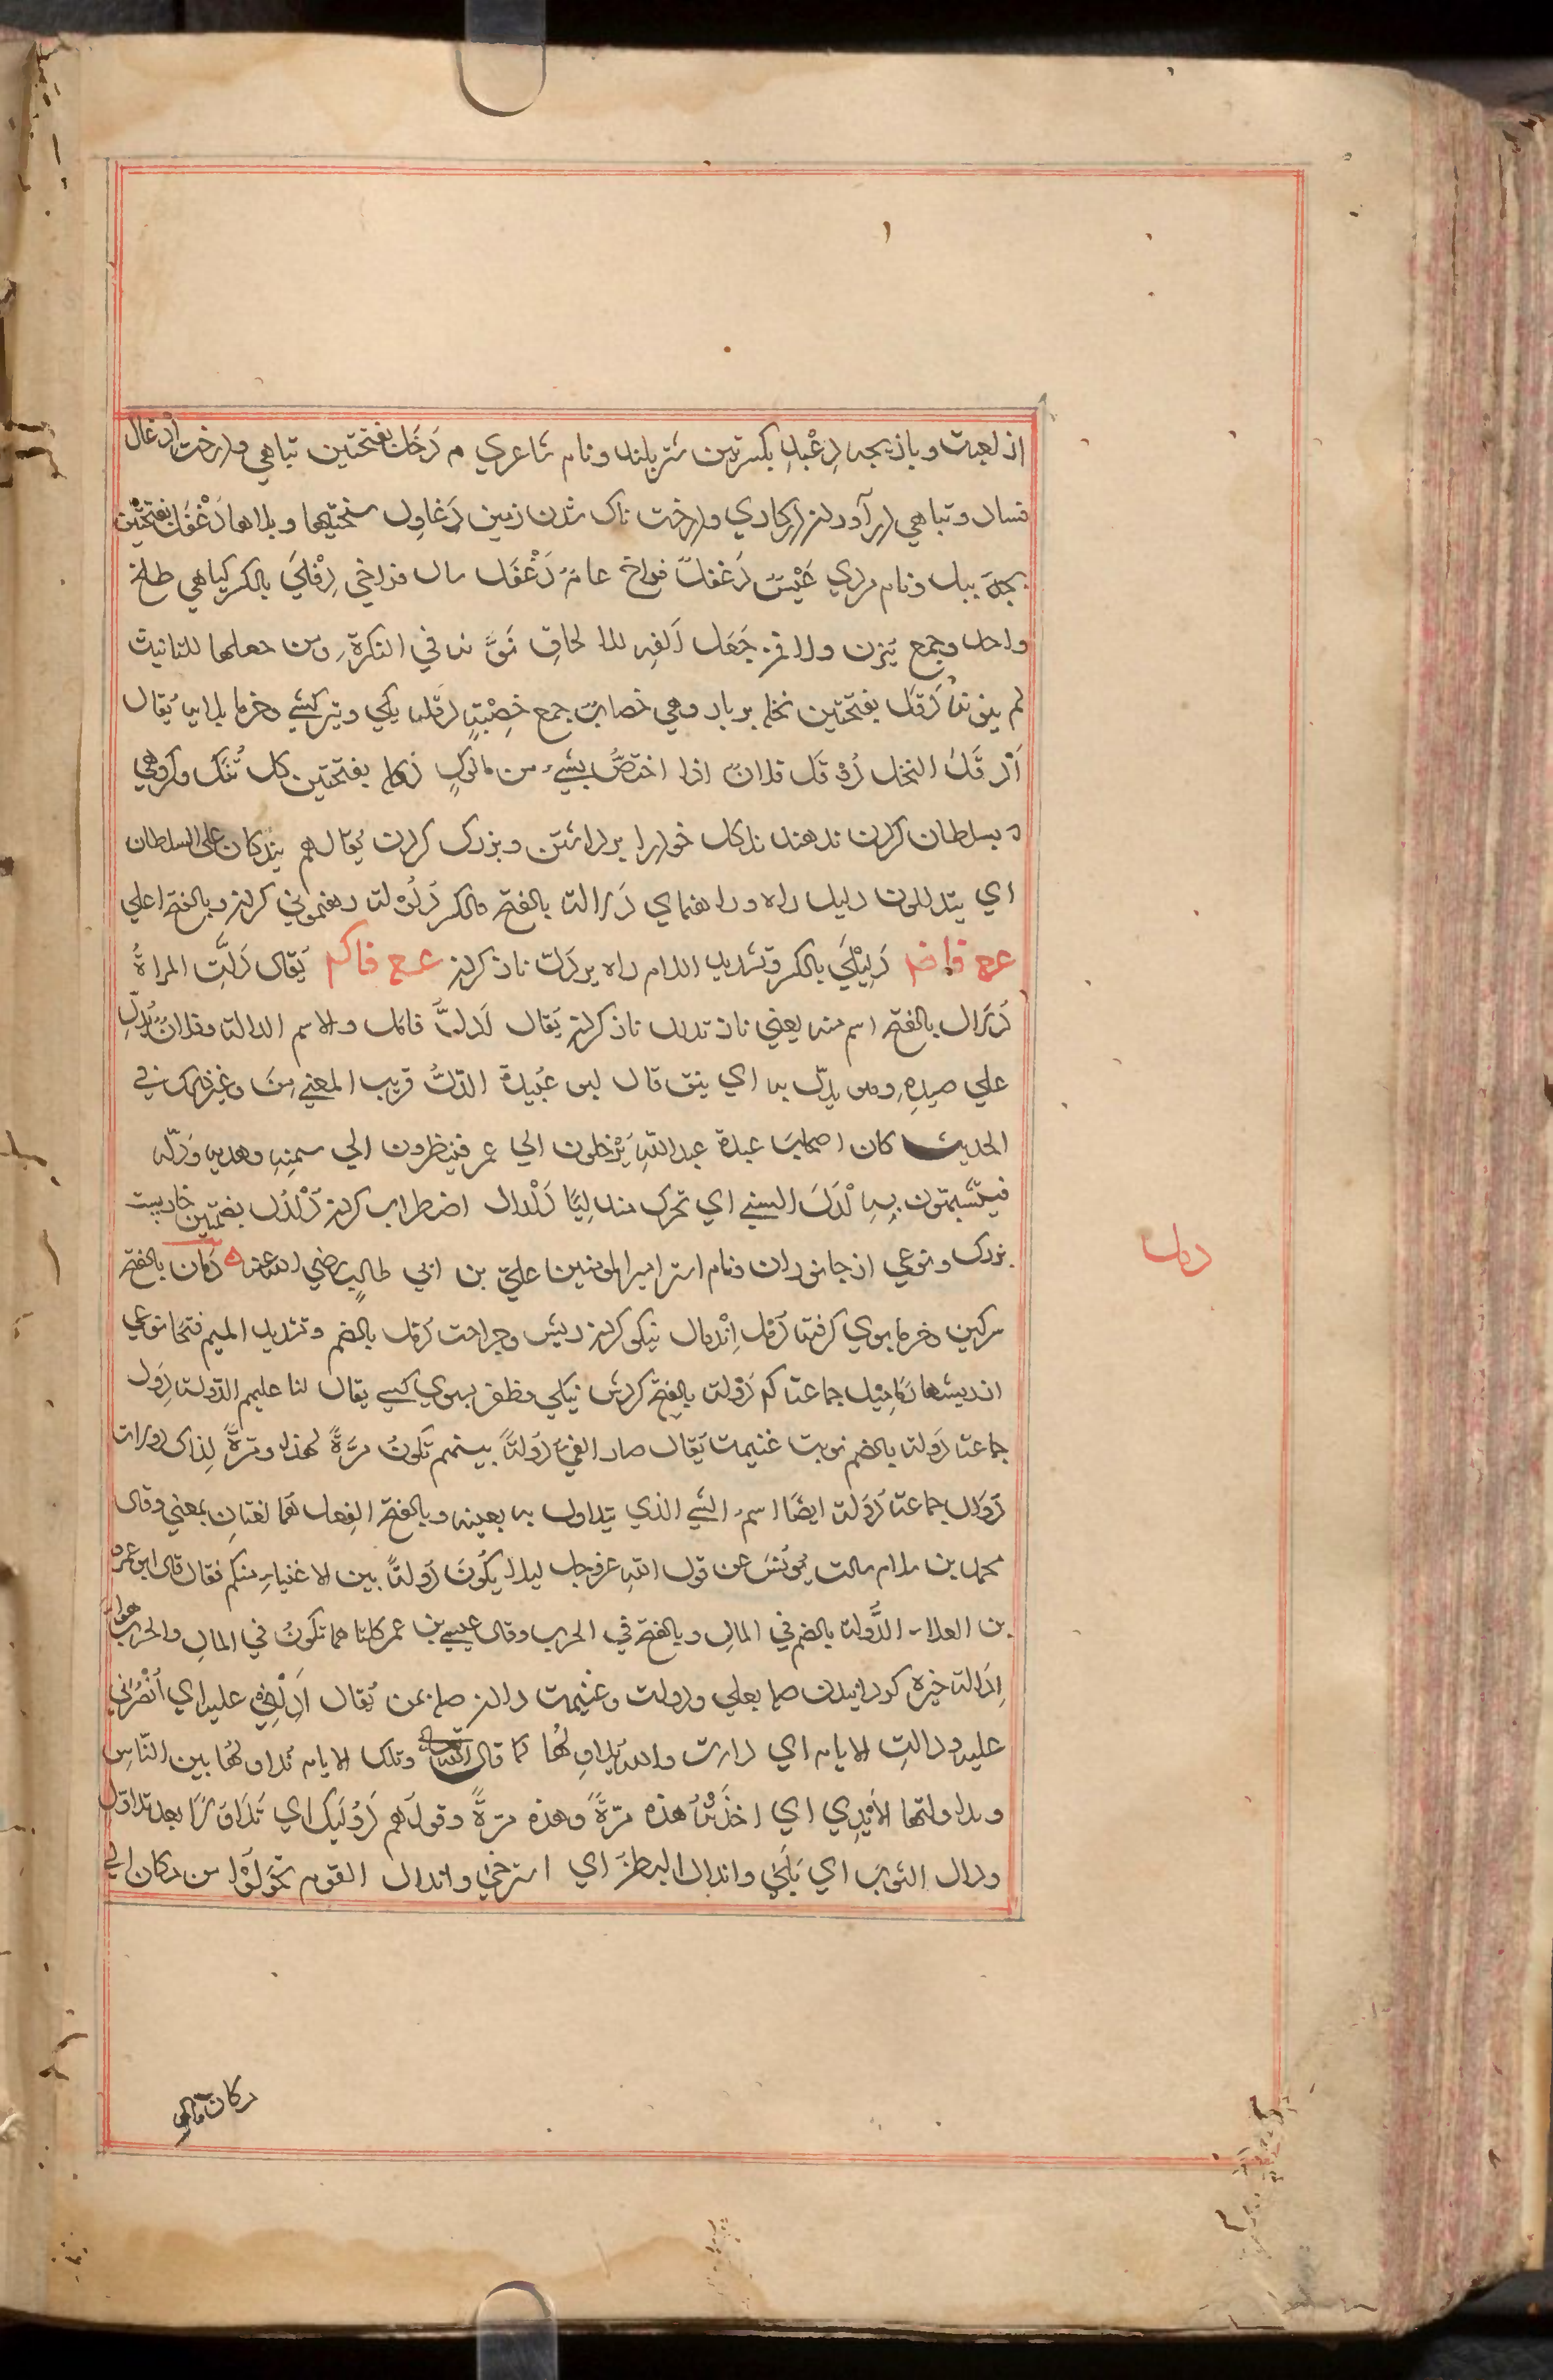 از لعبت وبازيجه دِعْبِل بكسرتين شتر بلند ونام شاعري م دَخَل بفتحتين تباهي ودرخت اِدْغال
فساد وتباهي درآوردن دركاري ودرخت ناك شدن زمين دَغاوِل سختيها وبلاها دَغْفَل بفتحتين
بچهٔ بيل ونام مردي عَيْش دَغفل فراخ عامٌ دَغْفَل سال فراخي دِفْلَي بالكسر كياهي طلخ
واحد وجمع يزن ولا فمن جَعَل اَلفه للالحاق نَوَّنه في النكرةِ ومن جعلها للتانيث
لم ينونه دَقَل بفتحتين نخل بربار وهي خصاب جمع خِصْبَةٍ دقله يكي وتير كشتي وخرما بلايه يُقال
اَدْقَل النخل دَوْقَل فلان اذا اختصّ بشيء من ماكولٍ دَكل بفتحتين كل تُنَك وكروهي
كه بسلطان كردن ندهند تدكل خودرا برداشتن وبزرك كردن يُقال هم يتدكلون علي السلطان
اي يتدللون دليل راه وراهنماي دَلالة بالفتح والكسر دُلُولة رهنموني كردن وبالفتح اعلي
ع ع فا ضم دِلِيْلَي بالكسر وتشديد اللام راه بر دَلّ ناز كردن ع ع فا كم يُقال دَلَّتِ المراةُ
دَلال بالفتح اسم منه يعني ناز تدلل ناز كردن يُقال اَدلَّ فامَلَّ والاسم الدالة وفلان يُدِلّ
علي صيدِه ومن يدلّ به اي يثق قال ابو عُبَيدة الدّلُّ قريب المعني مِن وغيرذلك في
الحديث كان اصحاب عبدة عبدالله يَرْحَلون الي عمر فينظرون الي سمتِه وهديه ودَلّه
فيتشبهون بِهِ تدَلْدَلَ الشيء اي تحرك متدليًا دَلْدال اضطراب كردن دُلْدُل بضمتين خاربشت
بزرك ونوعي از جانوران ونام استر اميرالمومنين عليّ بن ابي طالب رضي الله عنه دَمال بالفتح
سركين وخرما بوي كرفته دَمْل اِنْدِمال نيكو كردن ريش وجراحت دُمّل بالضم وتشديد الميم فتحا نوعي
از ريشها دَمامِيل جماعة كم دَوْلة بالفتح كردش نيكي وظفر بسوي كسي يقال لنا عليهم الدَّولة دِوَل
جماعة دُولة بالضم نوبت غنيمت يُقال صار الفيءُ دُولةً بينهم تكونُ مرّةً لهذا ومرّةً لِذاك دورات
دُوَل جماعة دُوْلة ايضًا اسمُ الشي الذي يتداول به بعينه وبالفتح الفِعل هُما لغتانِ بمعني وقال
محمد بن سلام سالت يُونُسَ عن قول الله عزوجل ليلا يكُونَ دُولةً بين الاغنياءِ منكم فقال قال ابن عمرو
بن العلاء الدُّولة بالضم في المال وبالفتح في الحرب وقال عيسي بن عمر كلتا هما تكونُ في المال والحرب سواء
اِدَالة خيره كردانيدن صا بعلي ودولت وغنيمت دادن صا بمن يُقال اَدِلْنِي عليه اي اُنْصُرْني
عليه ودالتِ الايام اي دارت والله يُداوِلُها كما قال الله تعالي وتلك الايام نُداولُها بين الناس
وتداولتها الاَيدِي اي اخذَتْهُ هذه مرّةً وهذه مرّةً وقولهم دَوَاليك اي تَداوُلًا بعد تداوُل
ودال الثوب اي بَلِيَ واندال البطن اي استرخي واندال القوم تحوَّلُوا من مكان الي
دمل
مكان